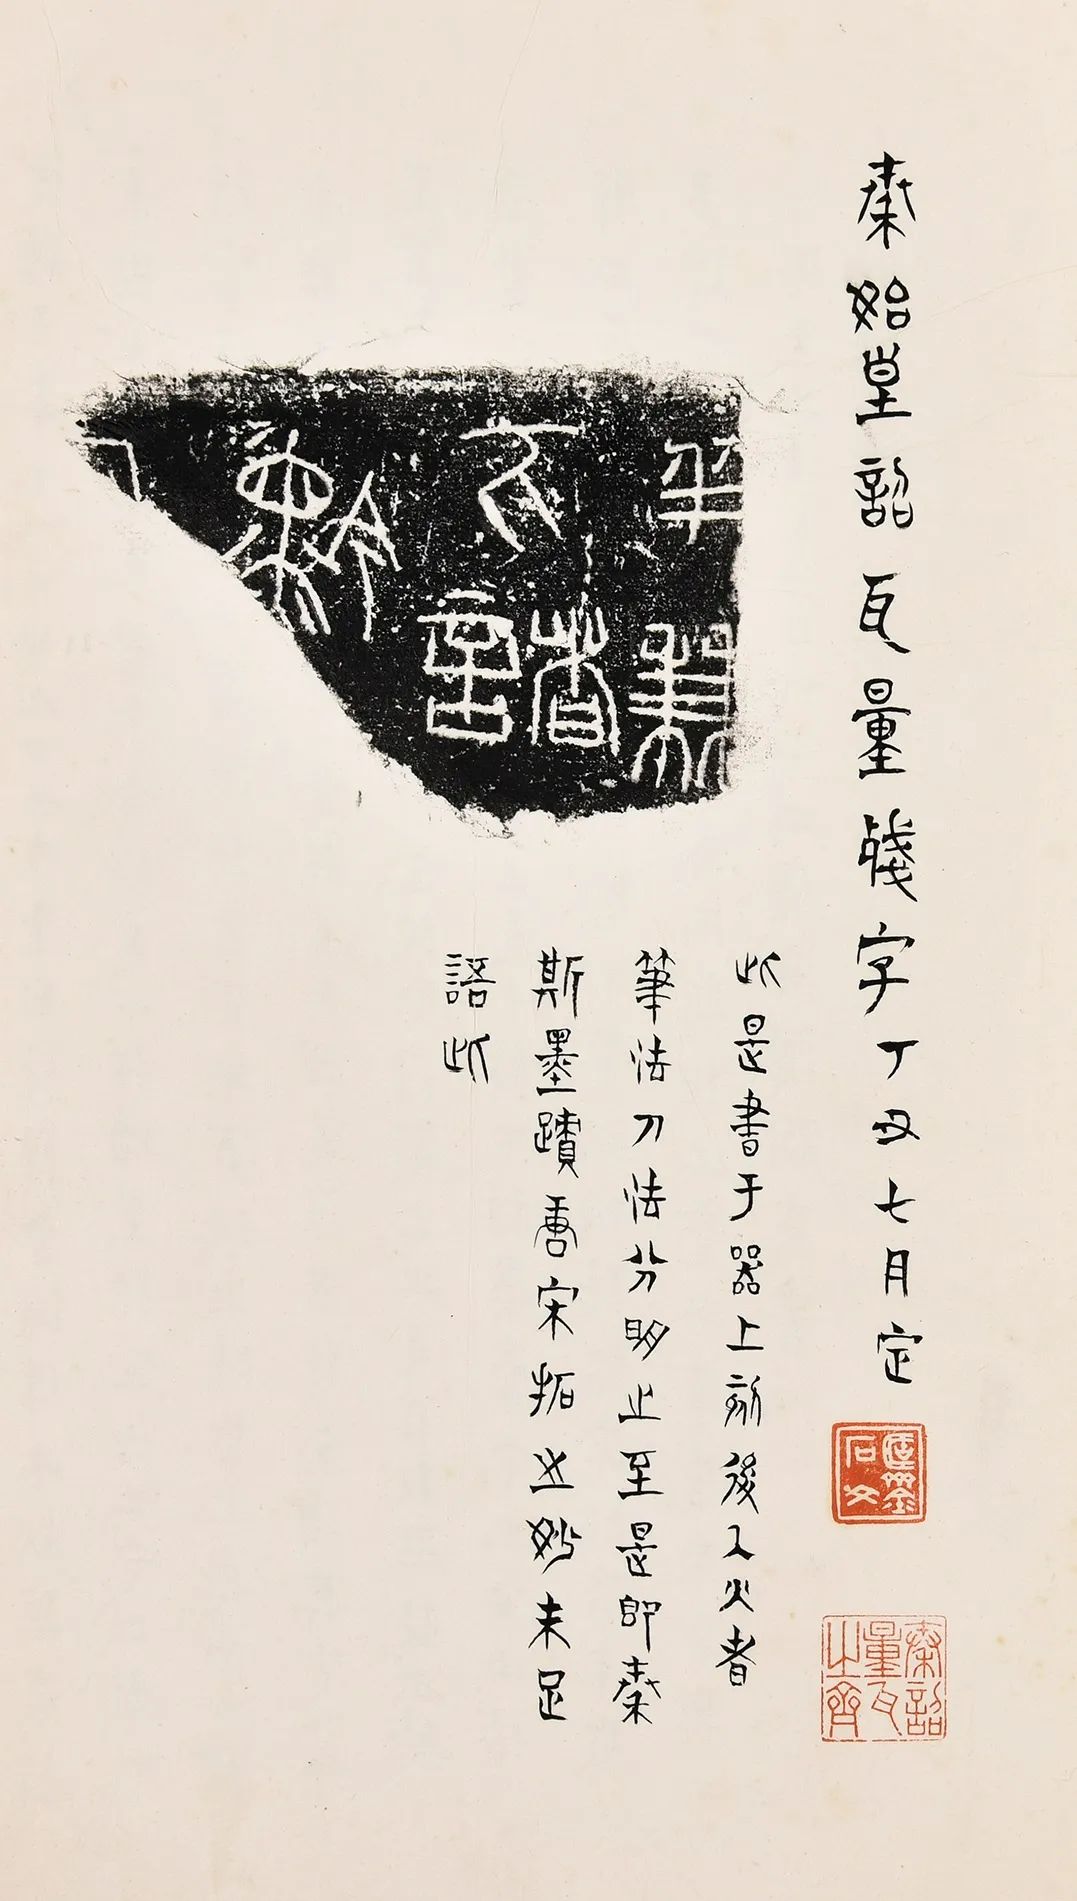 秦始皇詔瓦量殘字丁丑七月定
此是書于器上刻後入火者
筆法刀法分明止至是即秦
斯墨蹟唐宋拓之妙未足
語此
兼
諸
黔
秦詔量瓦之齋